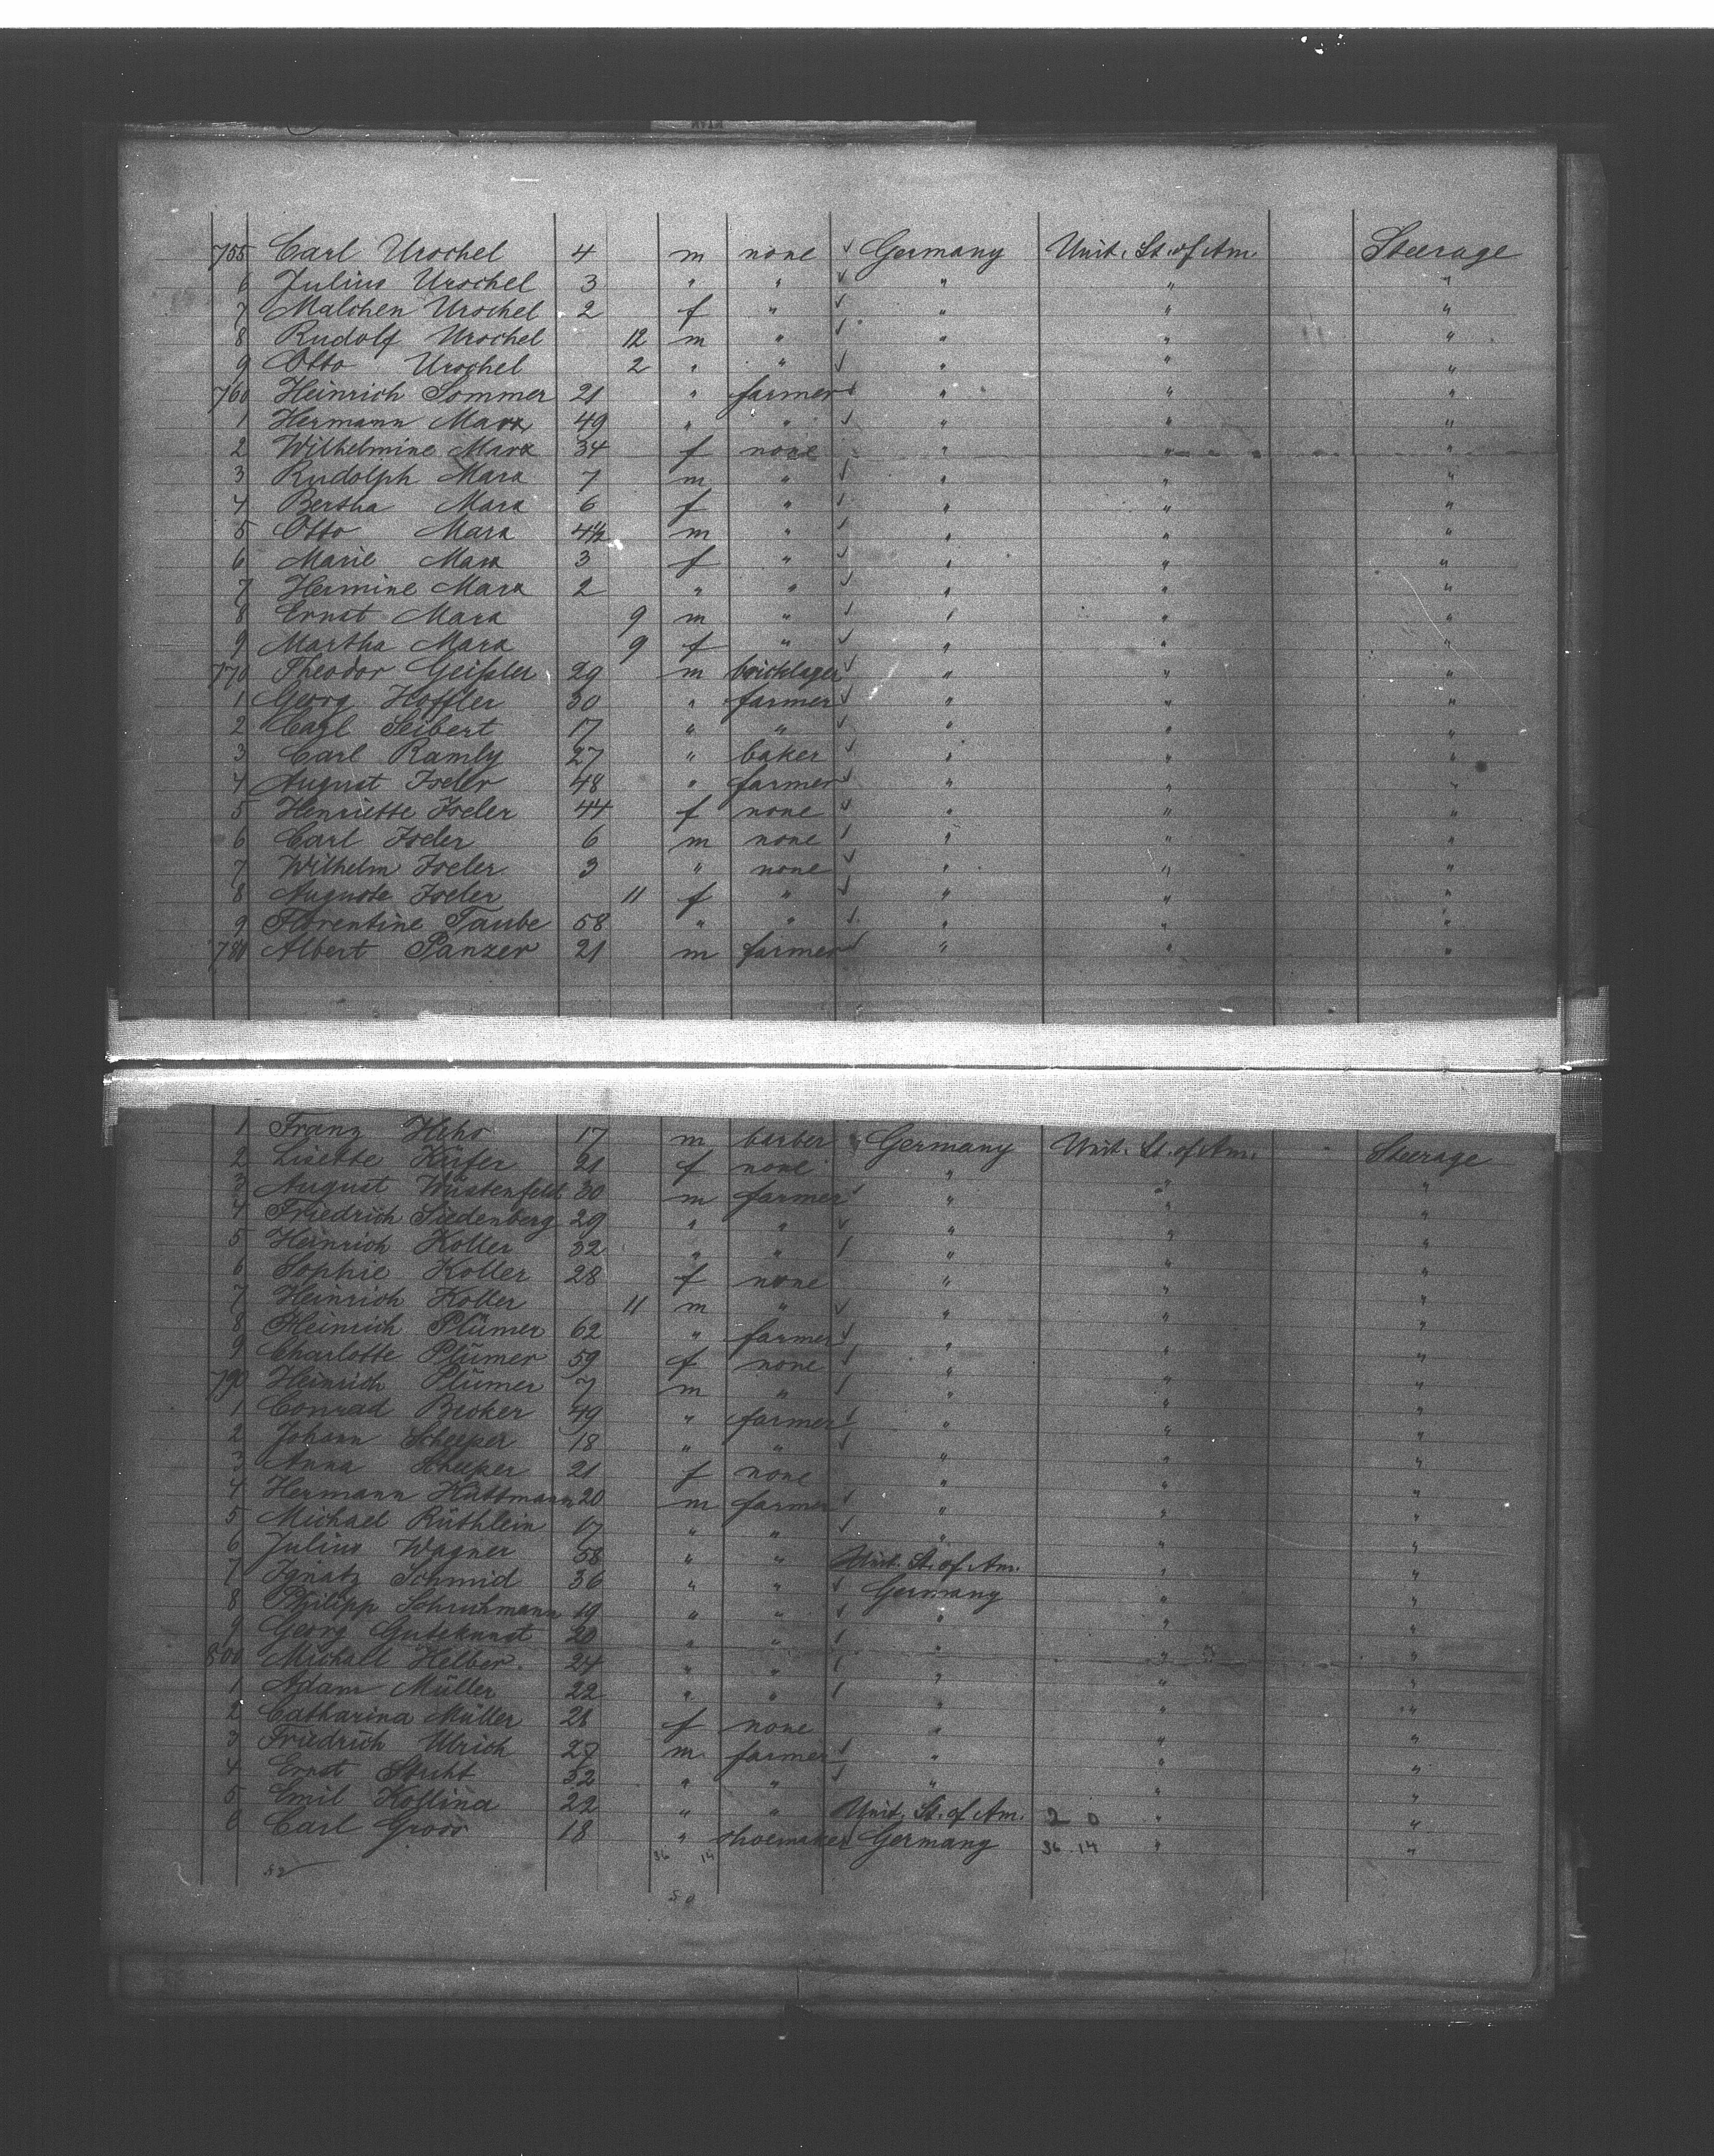 755 Carl Urschel 4 m none ✓ Germany Unit. St. of Am. Steerage
6 Julius Urschel 3 " " ✓ " " "
7 Malchen Urschel 2 f " ✓ " " "
8 Rudolf Urschel 12 m " ✓ " " "
9 Otto Urschel 2 " " ✓ " " "
760 Heinrich Sommer 21 " farmer ✓ " " "
1 Hermann Marx 49 " " ✓ " " "
2 Wilhelmine Marx 34 f none " " "
3 Rudolph Marx 7 m " ✓ " " "
4 Bertha Marx 6 f " ✓ " " "
5 Otto Marx 4½ m " ✓ " " "
6 Marie Marx 3 f " ✓ " " "
7 Hermine Marx 2 " " ✓ " " "
8 Ernst Marx 9 m " ✓ " " "
9 Martha Marx 9 f " ✓ " " "
770 Theodor Geißler 29 m bricklayer ✓ " " "
1 Georg Hoffler 30 " farmer ✓ " " "
2 Carl Seibert 17 " " ✓ " " "
3 Carl Ramly 27 " baker ✓ " " "
4 August Iseler 48 " farmer ✓ " " "
5 Henriette Iseler 44 f none ✓ " " "
6 Carl Iseler 6 m none ✓ " " "
7 Wilhelm Iseler 3 " none ✓ " " "
8 Auguste Iseler 11 f " ✓ " " "
9 Florentine Taube 58 " " ✓ " " "
780 Albert Panzer 21 m farmer ✓ " " "
1 Franz 17 m barber Germany Unit. St. of Am. Steerage
2 Lisette Käfer 21 f none " " "
3 August Wüstenfeld 30 m farmer ✓ " " "
4 Friedrich Siedenberg 29 " " ✓ " " "
5 Heinrich Koller 32 " " ✓ " " "
6 Sophie Koller 28 f none " " "
7 Heinrich Koller 11 m " ✓ " " "
8 Heinrich Plümer 62 " farmer ✓ " " "
9 Charlotte Plümer 59 f none ✓ " " "
790 Heinrich Plümer 7 m " ✓ " " "
1 Conrad Becker 49 " farmer ✓ " " "
2 Johann Scheeper 18 " " ✓ " " "
3 Anna Scheeper 21 f none " " "
4 Hermann Kattmann 20 m farmer ✓ " " "
5 Michael Rüthlein 17 " " ✓ " " "
6 Julius Wagner 58 " " Unit. St. of Am. " "
7 Ignatz Schmid 36 " " ✓ Germany " "
8 Philipp Schuhmann 19 " " ✓ " " "
9 Georg Gutekunst 20 " " ✓ " " "
800 Michael Helber 24 " " ✓ " " "
1 Adam Müller 22 " " ✓ " " "
2 Catharina Müller 21 f none " " "
3 Friedrich Ulrich 27 m farmer ✓ " " "
4 Ernst 32 " " ✓ " " "
5 Emil Kollina 22 " " Unit. St. of Am. 2 0 " "
6 Carl Gross 18 " shoemaker Germany 36 14 " "
52 36 14
50